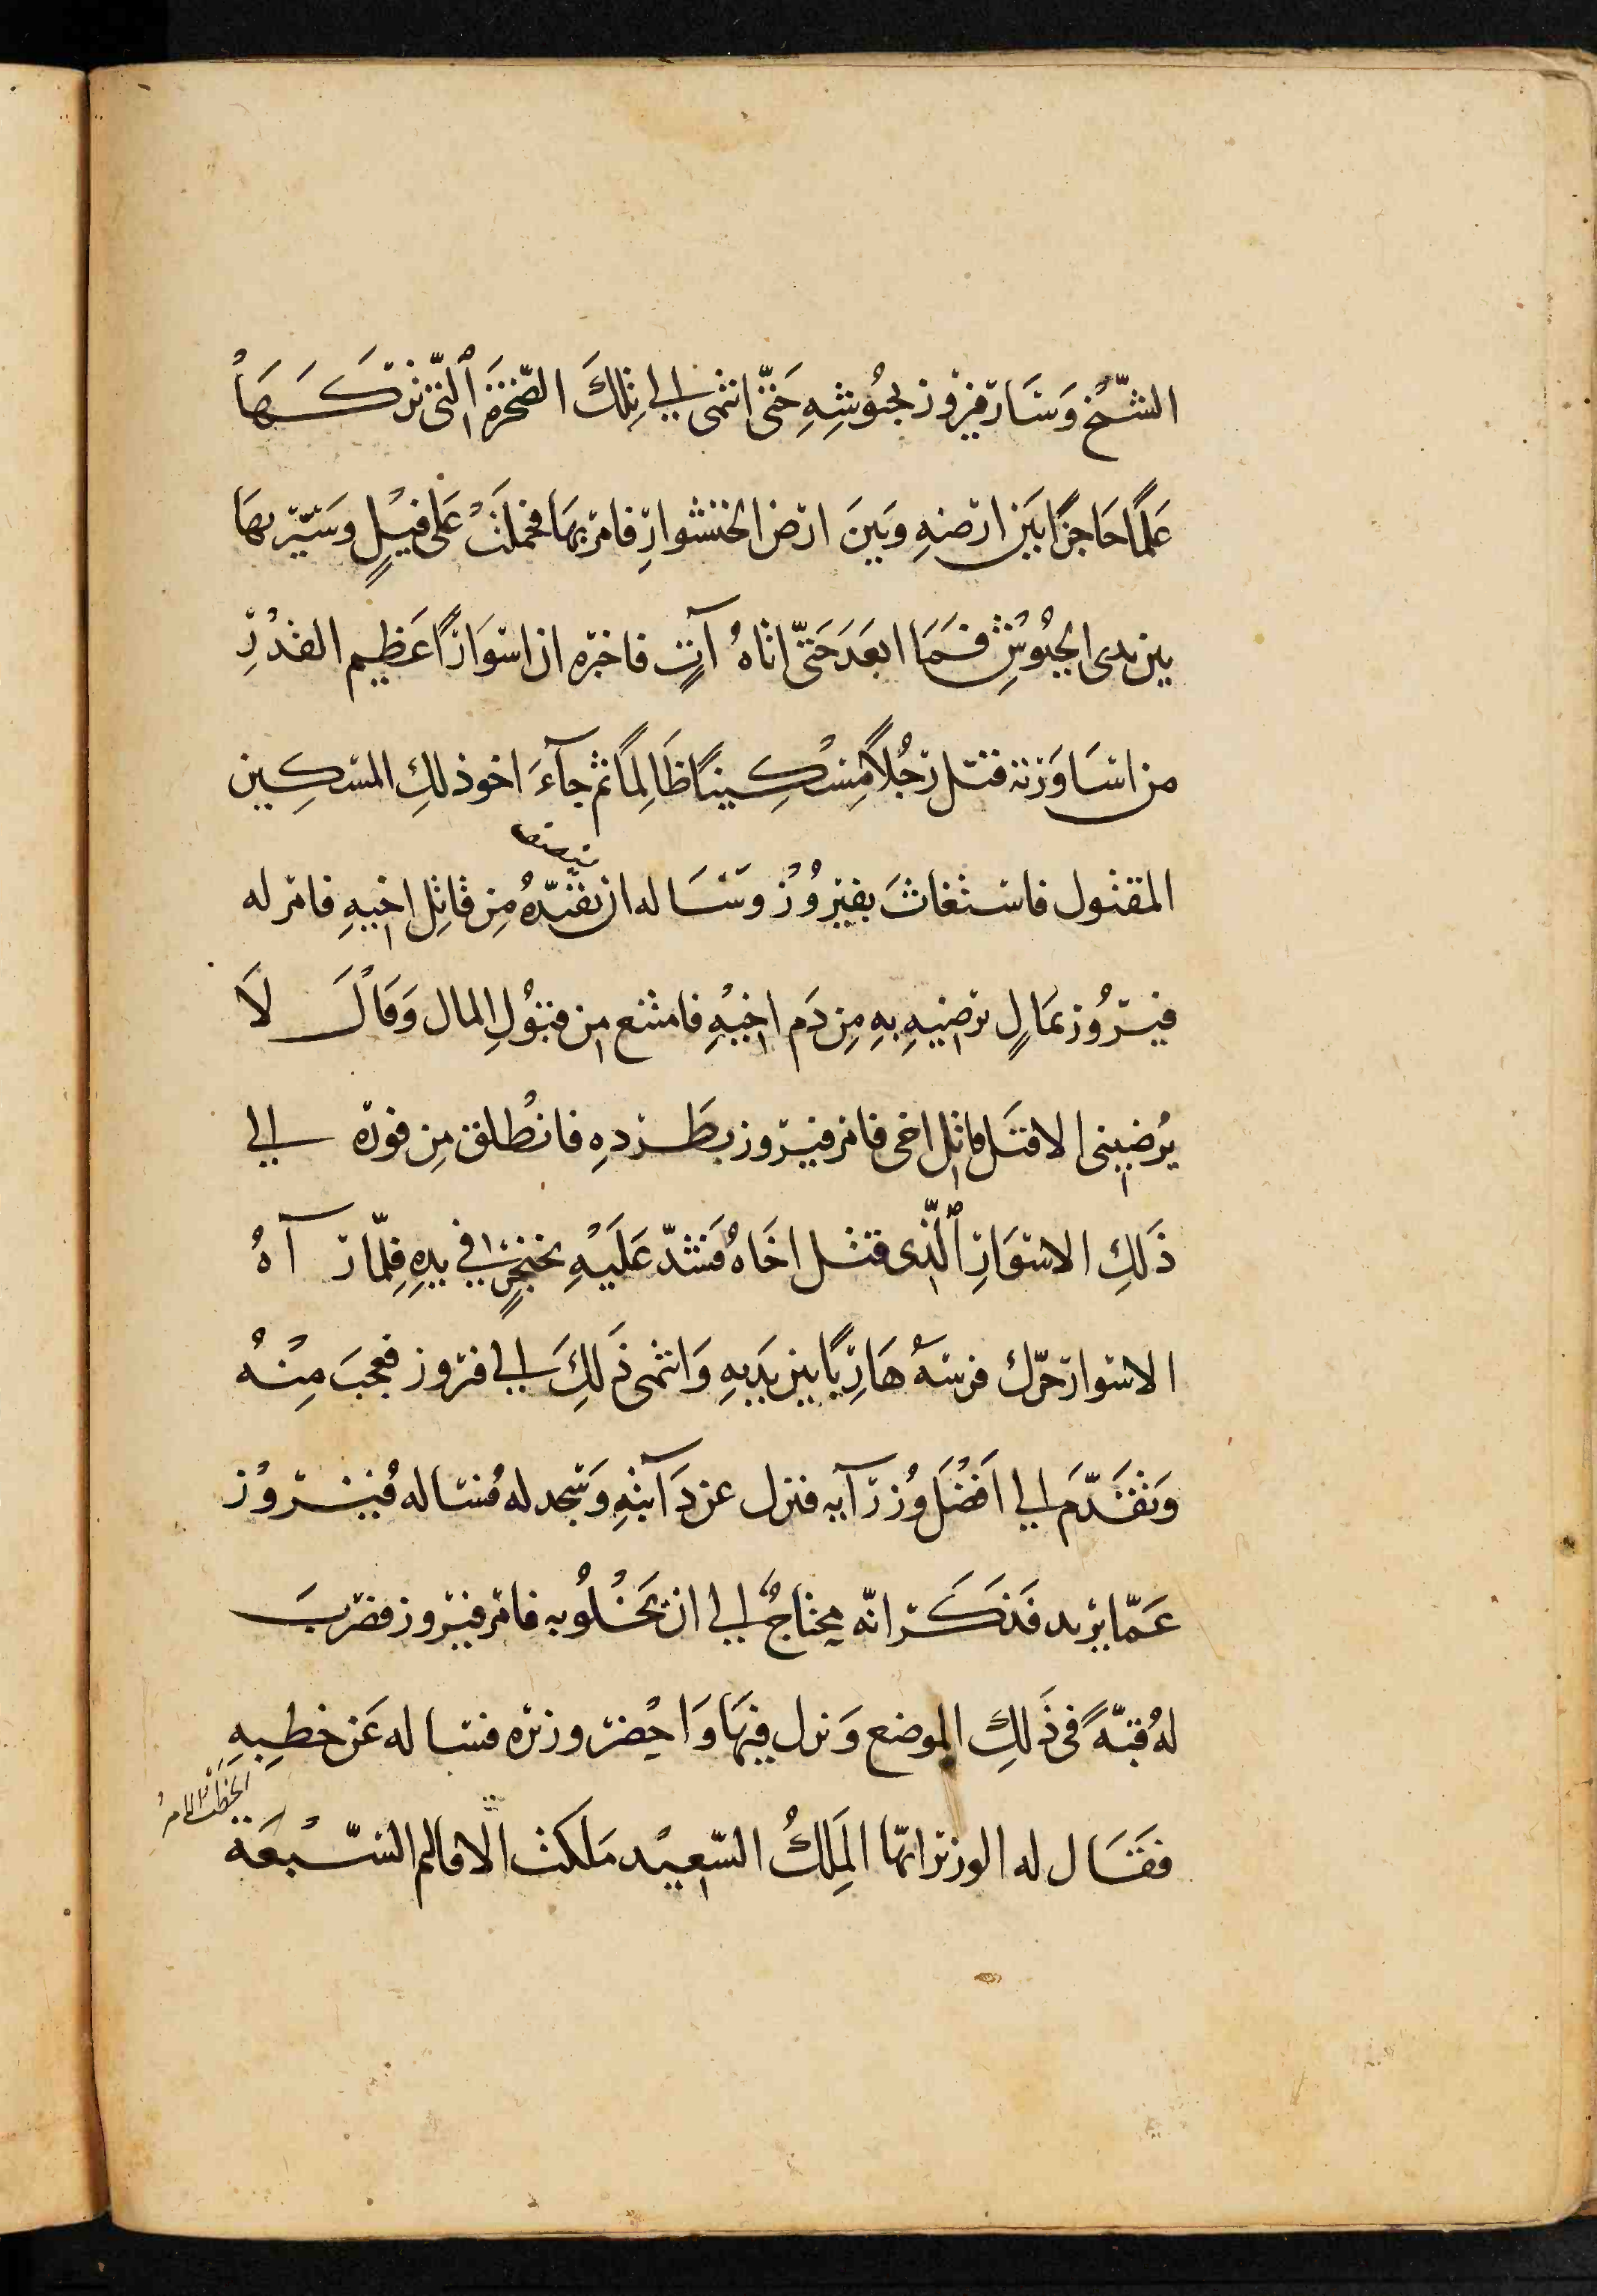 الشّخ وَسَار فيروز بجُيُوشِهِ حَتّى انتهى الى تِلكَ الصّخرَة الّتى تركَهَا
عَلَمًا حَاجزًا بَين ارضهِ وَبَينَ ارض الخنشوارِ فامر بهَا فحُملَت عَلى فيلٍ وسَيّر بهَا
بين يدى الجُيُوشِ فَمَا ابعَدَ حَتّى اتاهُ آتٍ فاخبره ان اسوَارًا عَظيم القدْرِ
من اسَاوَرته قتل رَجُلاً مِسْكِينًا ظَالِمًا ثم جآءَ اخو ذلِكِ المسكِين
المقتول فاستغاثَ بفيروُز وَسَاله ان يقيّدهُ مِن قاتِل اخيهِ فامر له
فيروُز بمَالٍ يرضيهِ بهِ مِن دَم اخيْهِ فامتنع من قبُولِ المال وَقالَ لَا
يُرضينى الا قتَل قاتل اخى فامر فيروز بطَردهِ فانْطلق مِن فوره الى
ذَلِكِ الاسوَارِ الّذى قتل اخَاهُ فَشدّ عَلَيْهِ بخنجرٍ فى يدِهِ فلمّا رآهُ
الاسوار حرّك فرسَهُ هَارِبًا بين يَديهِ وَانتهى ذَلِكَ الى فيروز فعجبَ مِنْهُ
وَتقَدّمَ الى اَفْضَل وُزرآيه فنزل عن دَآبتهِ وَسَجد له فسَاله فيْروُز
عَمّا يريد فَذكَر انّه محتاجٌ الى ان يَخْلُو به فامر فيروز فضربَ
لهُ قبّةً فى ذَلِكِ الموضع وَنزل فيهَا وَاحْضر وزيره فسَاله عَن خطبِهِ
الخَطْبُ الامرُ
فقَال له الوزير ايّها المَلِكُ السّعيْد ملكت الاقاليم السّبعَة